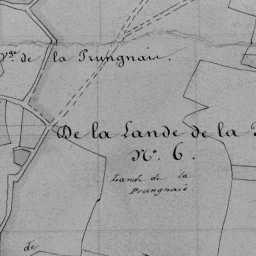 de la Prungnais.
De la Lande de la
No. 6.
Lande de la
Prungnais.
de